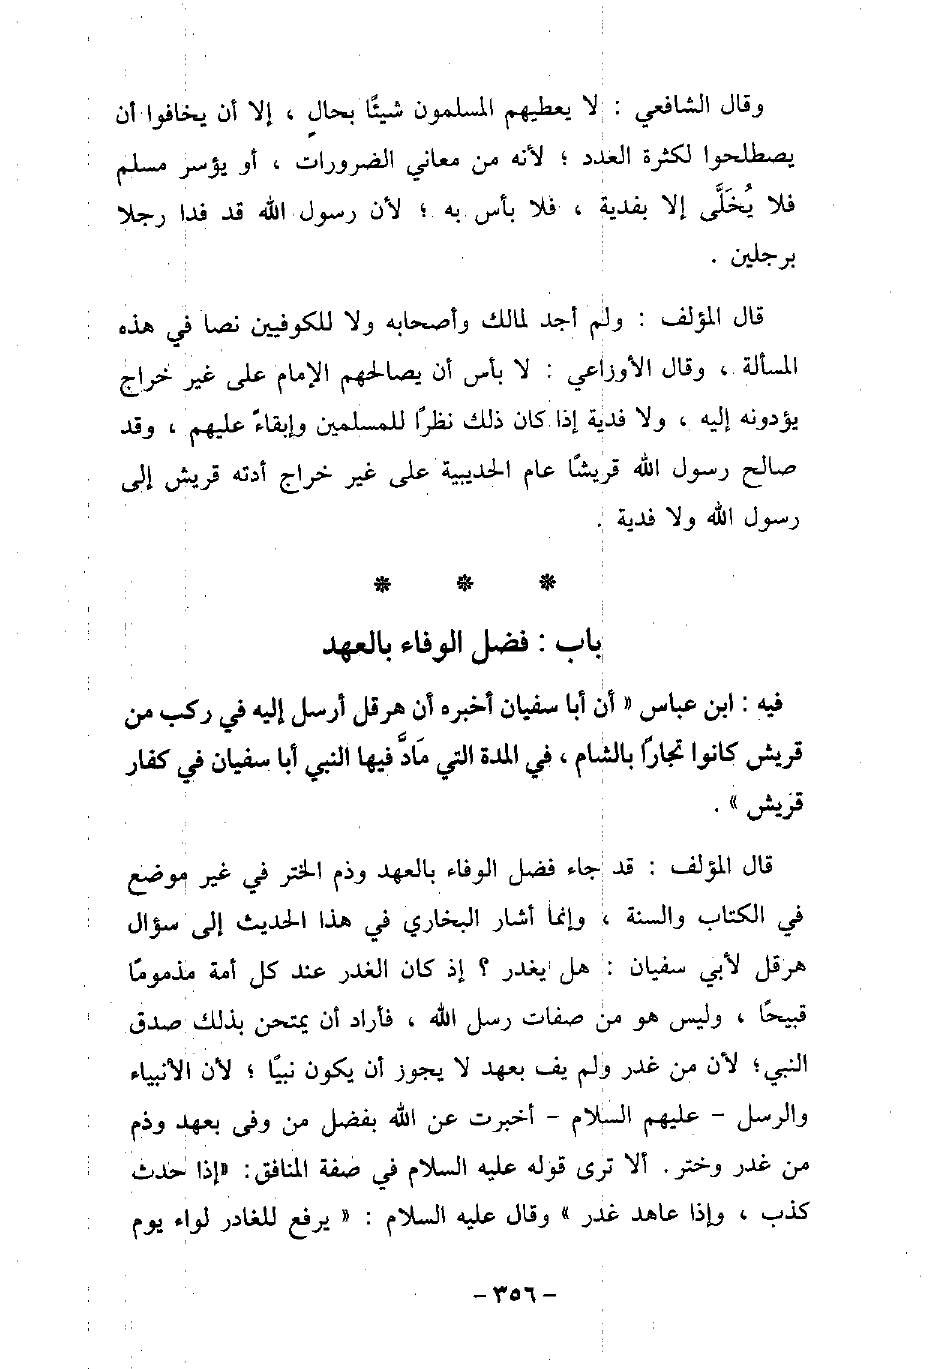 وقال الشافعي : لا يعطيهم المسلمون شيئًا بحالٍ ، إلا أن يخافوا أن
يصطلحوا لكثرة العدد ؛ لأنه من معاني الضرورات ، أو يؤسر مسلم
فلا يُخَلَّى إلا بفدية ، فلا بأس به ؛ لأن رسول الله قد فدا رجلا
برجلين .
قال المؤلف : ولم أجد لمالك وأصحابه ولا للكوفيين نصا في هذه
المسألة ، وقال الأوزاعي : لا بأس أن يصالحهم الإمام على غير خراج
يؤدونه إليه ، ولا فدية إذا كان ذلك نظرًا للمسلمين وإبقاءً عليهم ، وقد
صالح رسول الله قريشًا عام الحديبية على غير خراج أدته قريش إلى
رسول الله ولا فدية .
* * *
باب : فضل الوفاء بالعهد
فيه : ابن عباس « أن أبا سفيان أخبره أن هرقل أرسل إليه في ركب من
قريش كانوا تجارًا بالشام ، في المدة التي مَادَّ فيها النبي أبا سفيان في كفار
قريش » .
قال المؤلف : قد جاء فضل الوفاء بالعهد وذم الختر في غير موضع
في الكتاب والسنة ، وإنما أشار البخاري في هذا الحديث إلى سؤال
هرقل لأبي سفيان : هل يغدر ؟ إذ كان الغدر عند كل أمة مذمومًا
قبيحًا ، وليس هو من صفات رسل الله ، فأراد أن يمتحن بذلك صدق
النبي؛ لأن من غدر ولم يف بعهد لا يجوز أن يكون نبيًا ؛ لأن الأنبياء
والرسل - عليهم السلام - أخبرت عن الله بفضل من وفى بعهد وذم
من غدر وختر. ألا ترى قوله عليه السلام في صفة المنافق: «إذا حدث
كذب ، وإذا عاهد غدر » وقال عليه السلام : « يرفع للغادر لواء يوم
- ٣٥٦ -